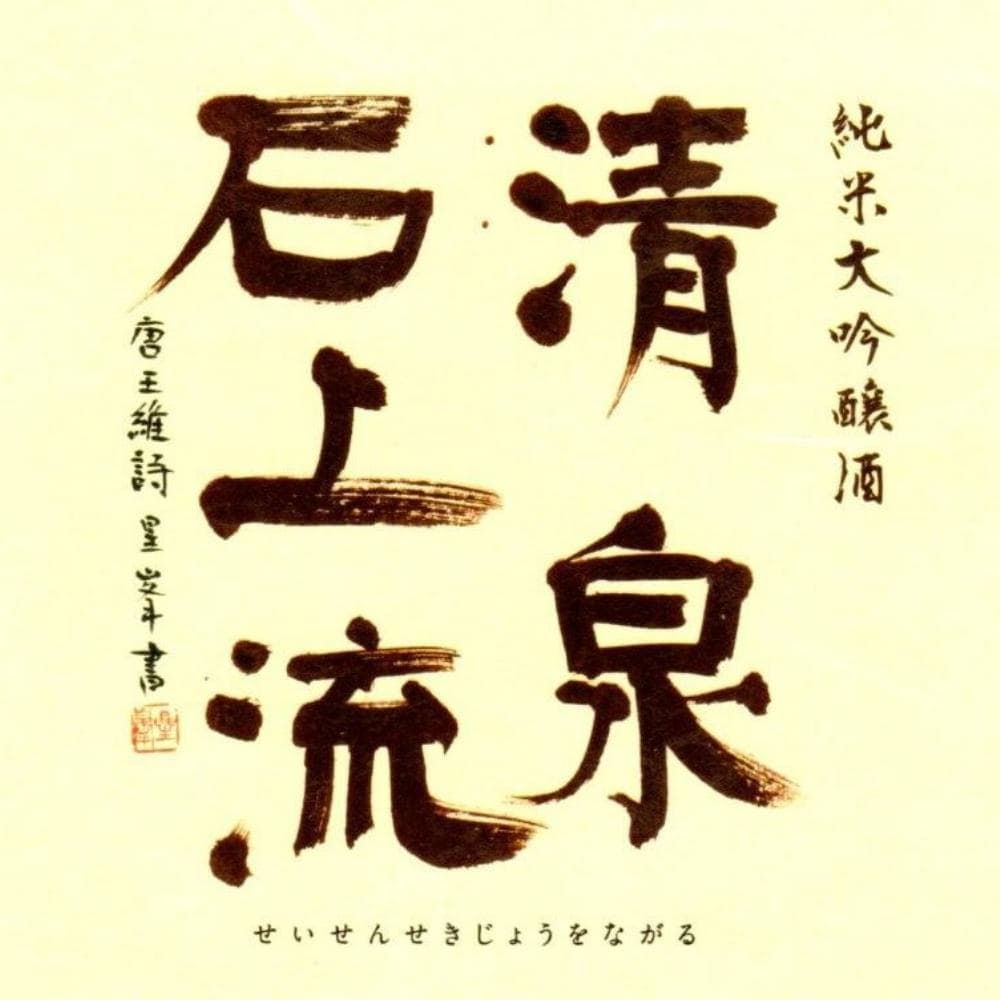 純米大吟醸酒
清泉
石上流
唐王維詩 星峯書
せいせんせきじょうをながる